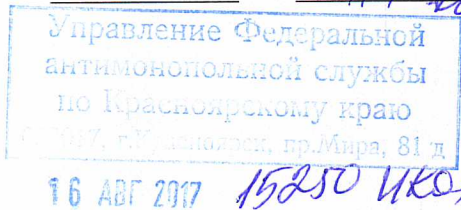 Управление Федеральной
антимонопольной службы
по Красноярскому краю
г.Красноярск, пр.Мира, 81 д
16 АВГ 2017 15250